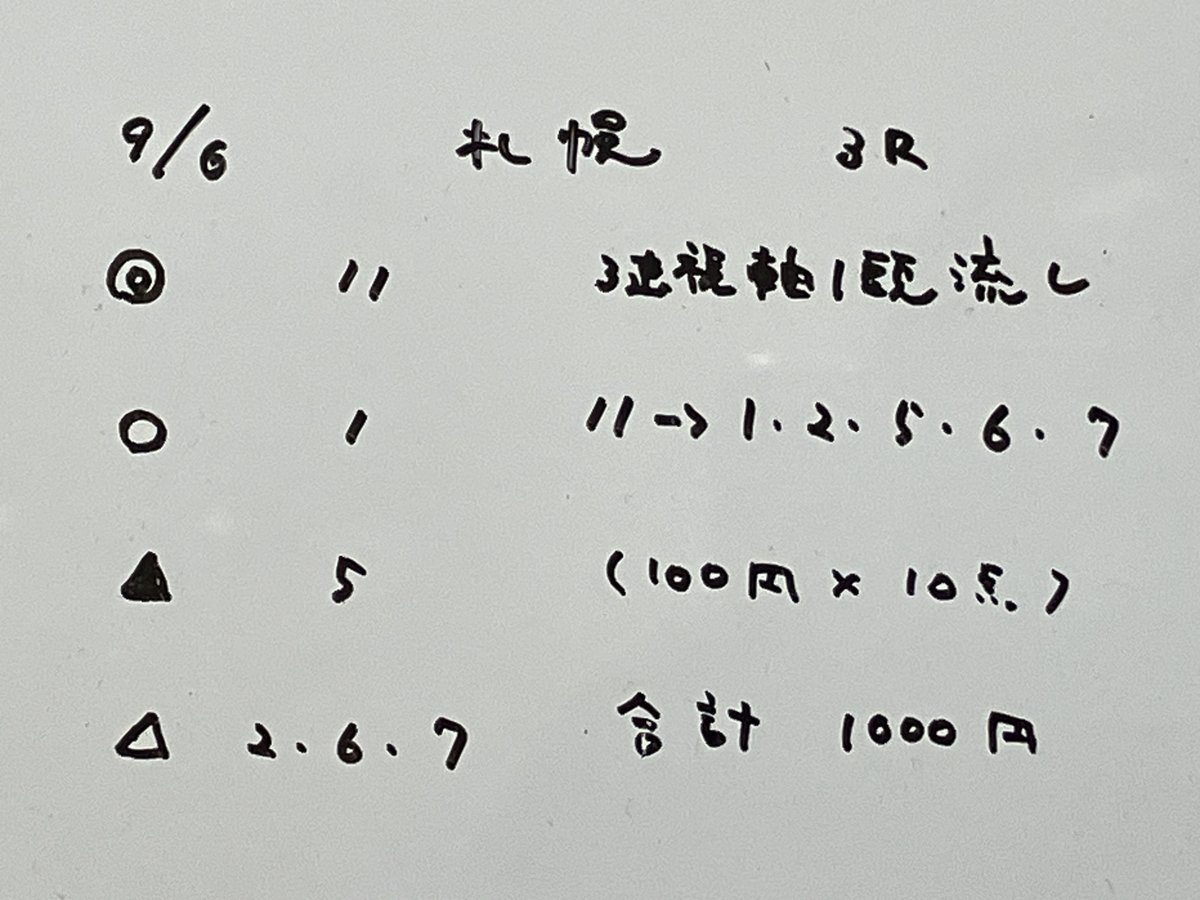 9/6 札幌 3R
◎ 11 3連複軸1頭流し
○ 1 11→1.2.5.6.7
▲ 5 (100円×10点)
△ 2.6.7 合計 1000円